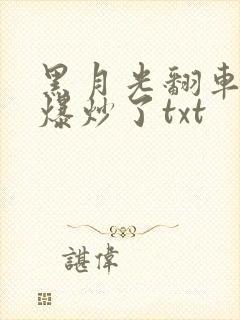 黑月光翻車
爆炒了txt
諶偉